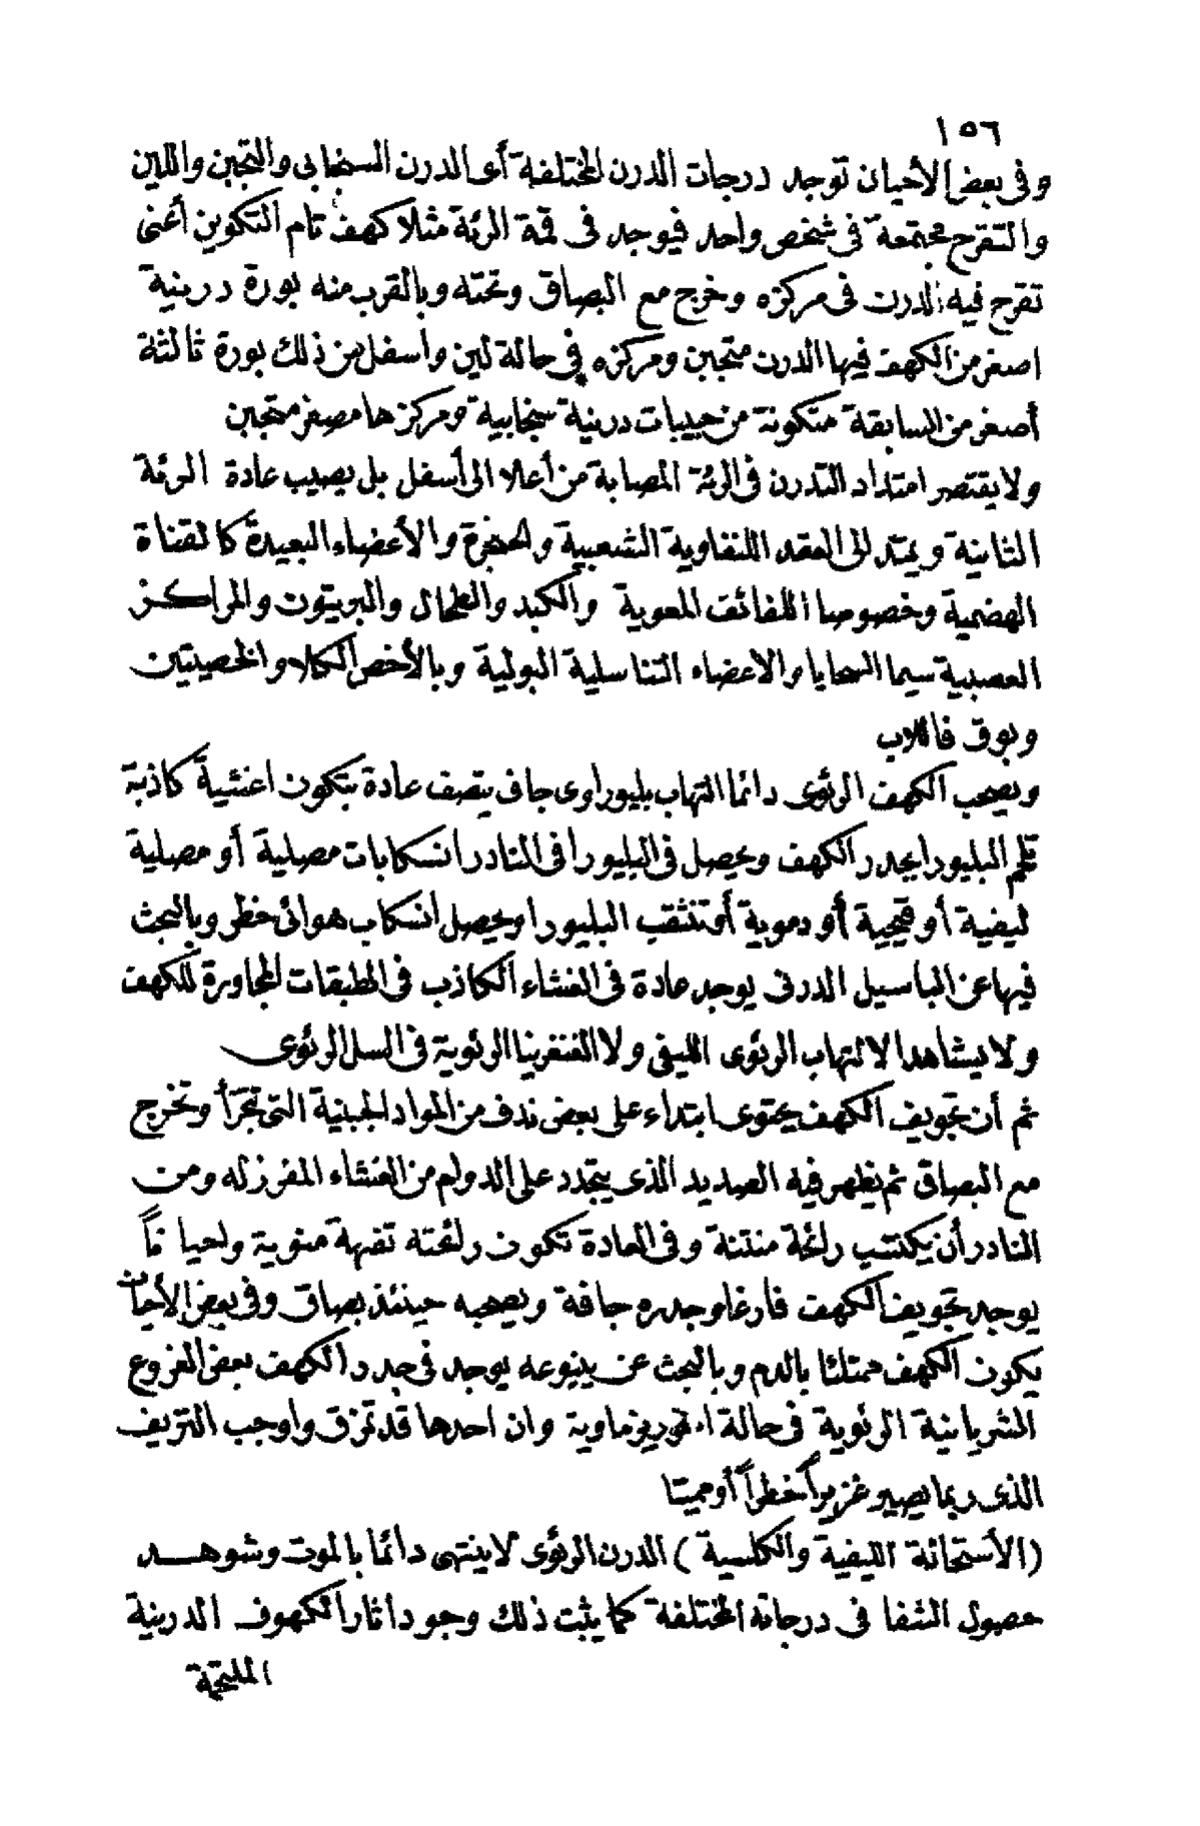 ١٥٦
وفى بعض الأحيان توجد درجات الدرن المختلفة أى الدرن السنجابى والتجبن واللين
والتقرح مجتمعة فى شخص واحد فيوجد فى قمة الرئة مثلا كهف تام التكوين أعنى
تقرح فيه الدرن فى مركزه وخرج مع البصاق وتحته وبالقرب منه بورة درينية
اصغر من الكهف فيها الدرن متجبن ومركزه فى حالة لين وأسفل من ذلك بورة ثالثة
أصغر من السابقة متكونة من حبيبات درنية سنجابية ومركزها مصفر متجبن
ولا يقتصر امتداد التدرن فى الرئة المصابة من أعلا الى أسفل بل يصيب عادة الرئة
الثانية ويمتد الى العقد اللنفاوية الشعبية والحنجرة والأعضاء البعيدة كالقناة
الهضمية وخصوصا اللفائف المعوية والكبد والطحال والبريتون والمراكز
العصبية سيما السحايا والاعضاء التناسلية البولية وبالأخص الكلا والخصيتين
وبوق فالوب
ويصحب الكهف الرئوى دائما التهاب بليوراوى جاف يتصف عادة بتكون اغشية كاذبة
تلحم البليورا بجدر الكهف ويحصل فى البليورا فى النادر انسكابات مصلية أو مصلية
ليفية أو قيحية أو دموية أو تنثقب البليورا ويحصل انسكاب هوائى خطر وبالبحث
فيها عن الباسيل الدرنى يوجد عادة فى الغشاء الكاذب فى الطبقات المجاورة للكهف
ولا يشاهد الالتهاب الرئوى الليفى ولا الغنغرينا الرئوية فى السل الرئوى
ثم أن تجويف الكهف يحتوى ابتداء على بعض ندف من المواد الجبنية التى تتجزأ وتخرج
مع البصاق ثم يظهر فيه الصديد الذى يتجدد على الدوام من الغشاء المفرز له ومن
النادر أن يكتسب رائحة منتنة وفى العادة تكون رائحته تفهة منوية واحيانًا
يوجد تجويف الكهف فارغا وجدره جافة ويصحبه حينئذ بصاق وفى بعض الأحيان
يكون الكهف ممتلئا بالدم وبالبحث عن ينبوعه يوجد فى جدر الكهف بعض الفروع
الشريانية الرئوية فى حالة انوريزماوية وان احدها قد تمزق واوجب النزيف
الذى ربما يصير غزيراً خطراً أو مميتا
(الأستحالة الليفية والكلسية) الدرن الرئوى لا ينتهى دائما بالموت وشوهد
حصول الشفا فى درجاته المختلفة كما يثبت ذلك وجود اثار الكهوف الدرينية
الملتحمة